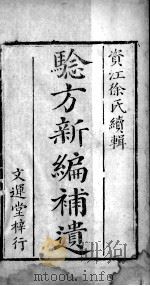 資江徐氏續輯
驗方新編補遺
文運堂梓行
mtoou.info